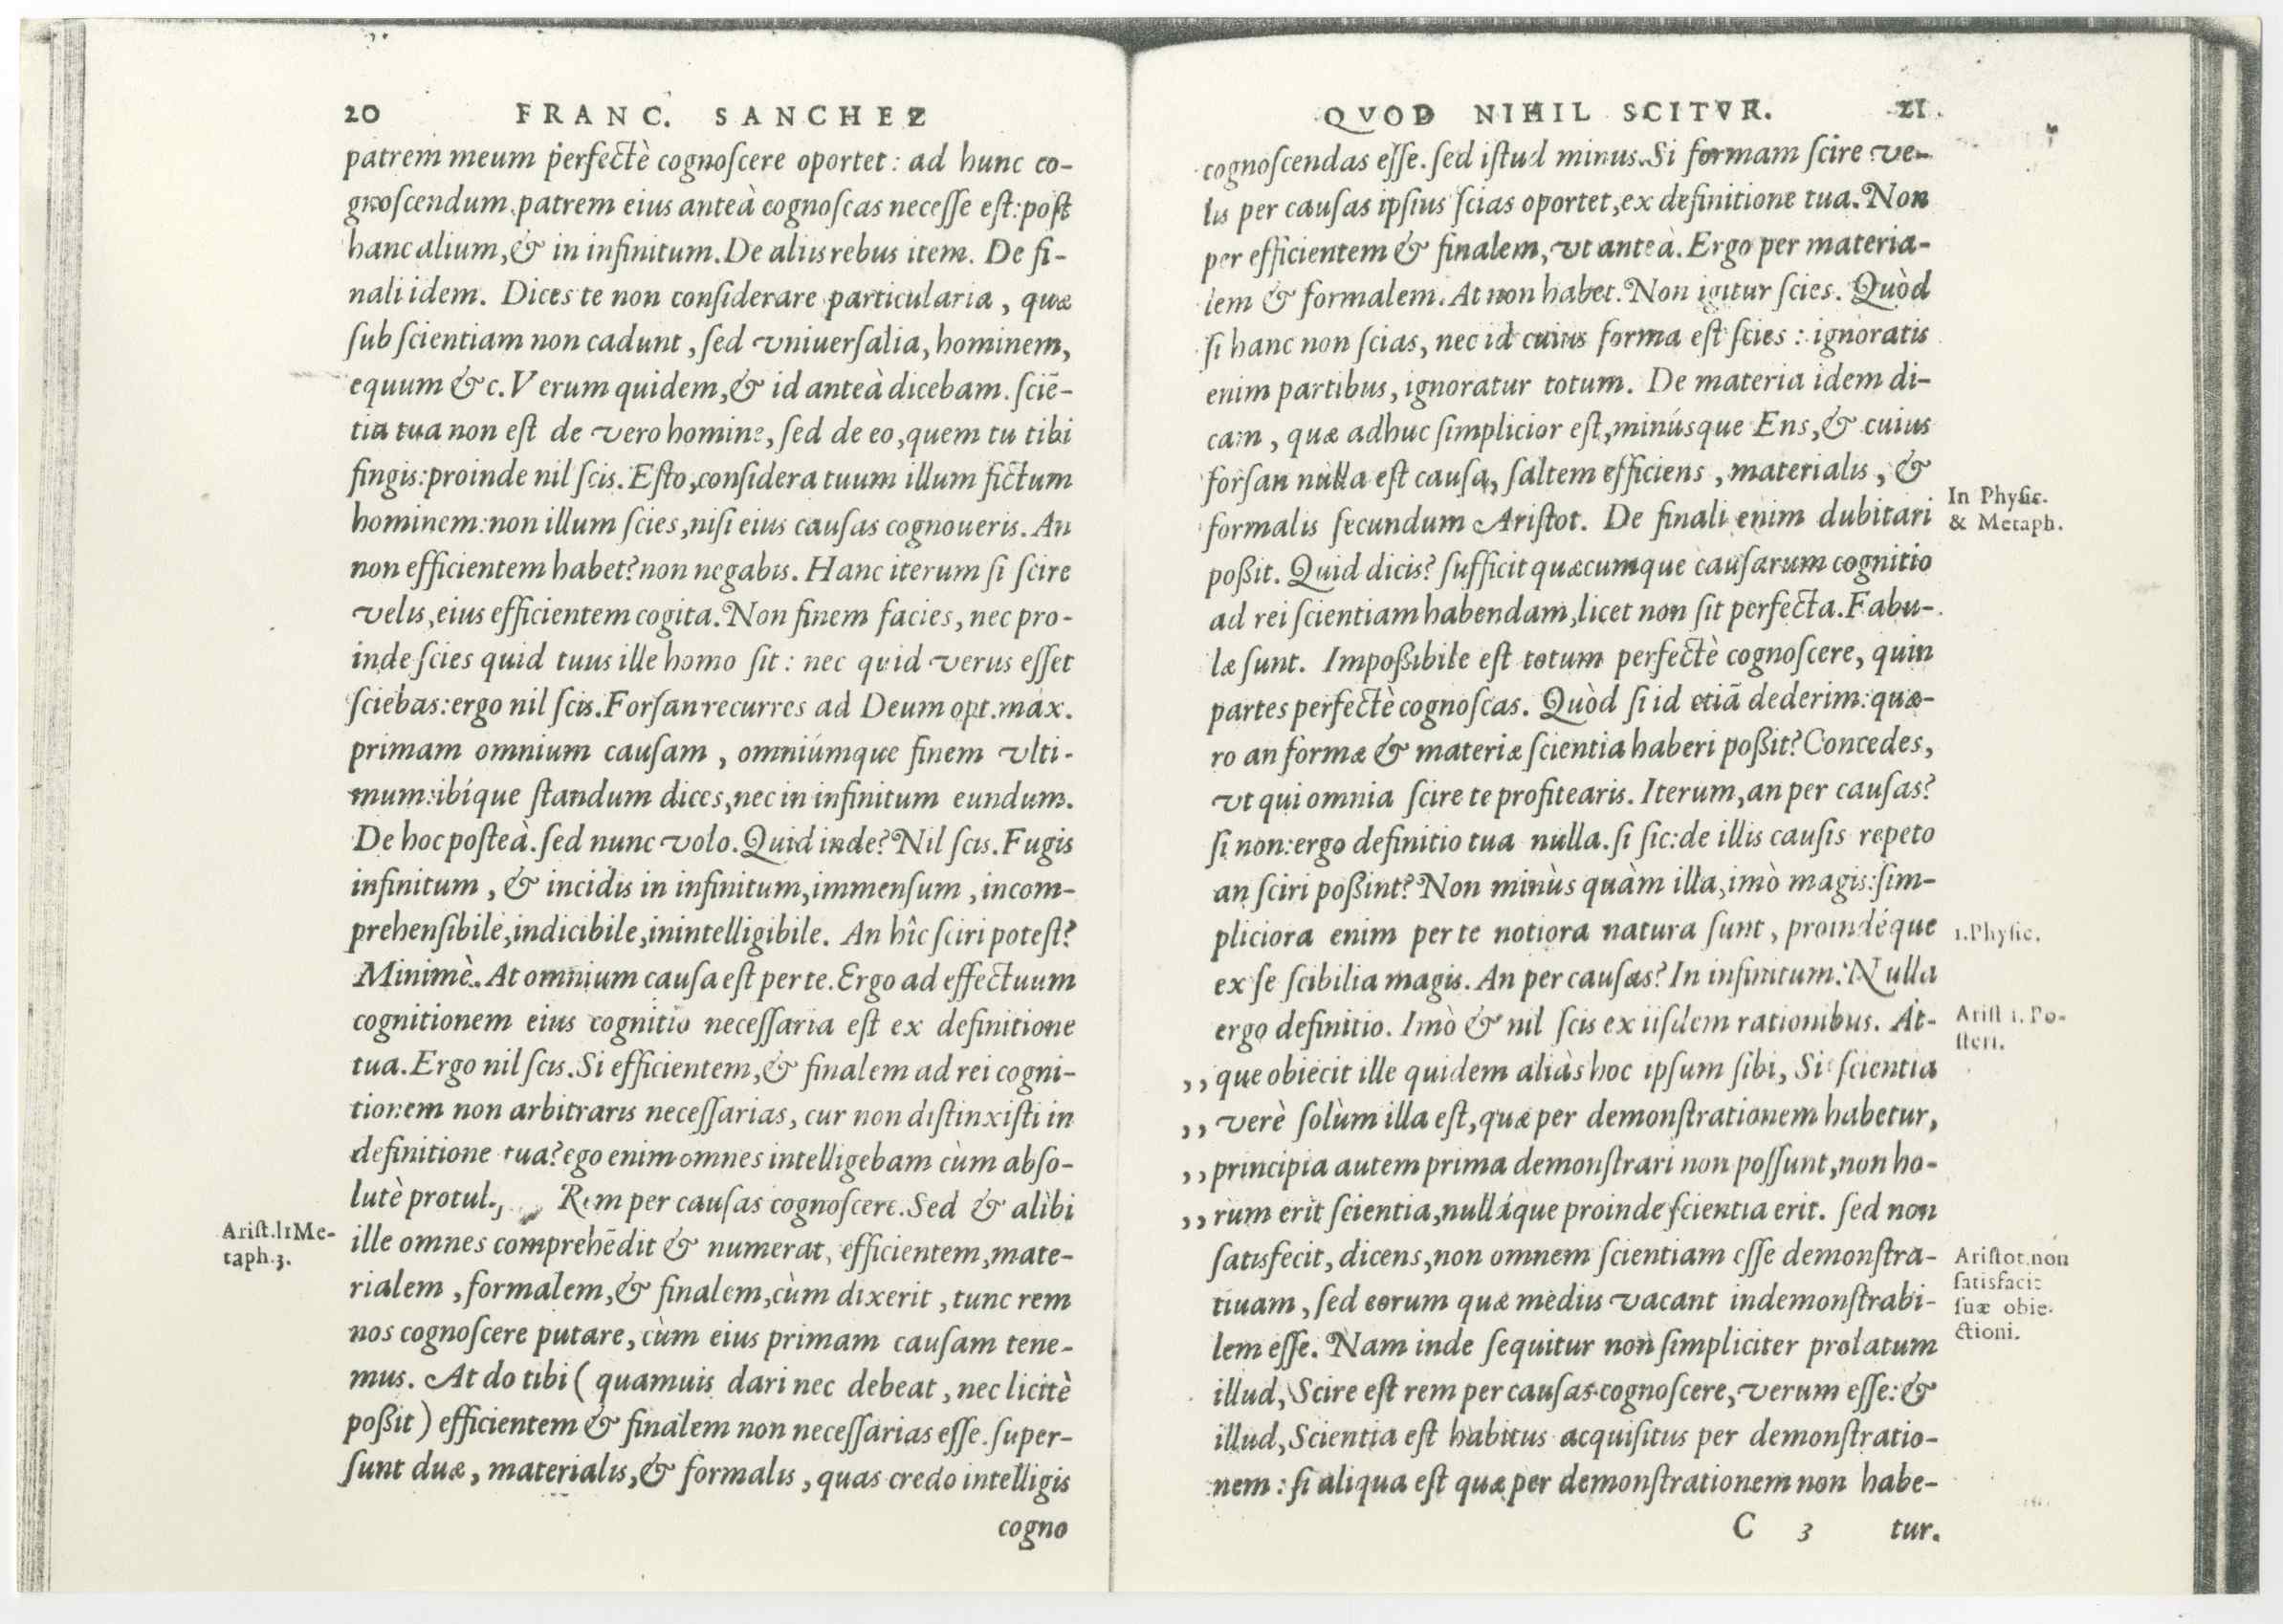 20 FRANC. SANCHEZ
patrem meum perfectè cognoſcere oportet: ad hunc co-
gnoſcendum patrem eius anteà cognoſcas neceſſe eſt: poſt
hanc alium, & in infinitum. De aliis rebus item. De fi-
nali idem. Dices te non conſiderare particularia, quæ
ſub ſcientiam non cadunt, ſed vniuerſalia, hominem,
equum &c. Verum quidem, & id anteà dicebam. ſciē-
tia tua non eſt de vero homine, ſed de eo, quem tu tibi
fingis: proinde nil ſcis. Eſto, conſidera tuum illum fictum
hominem: non illum ſcies, niſi eius cauſas cognoueris. An
non efficientem habet? non negabis. Hanc iterum ſi ſcire
velis, eius efficientem cogita. Non finem facies, nec pro-
inde ſcies quid tuus ille homo ſit: nec quid verus eſſet
ſciebas: ergo nil ſcis. Forſan recurres ad Deum opt. máx.
primam omnium cauſam, omniúmque finem vlti-
mum: ibíque ſtandum dices, nec in infinitum eundum.
De hoc poſteà. ſed nunc volo. Quid inde? Nil ſcis. Fugis
infinitum, & incidis in infinitum, immenſum, incom-
prehenſibile, indicibile, inintelligibile. An hîc ſciri poteſt?
Minimè. At omnium cauſa eſt per te. Ergo ad effectuum
cognitionem eius cognitio neceſſaria eſt ex definitione
tua. Ergo nil ſcis. Si efficientem, & finalem ad rei cogni-
tionem non arbitraris neceſſarias, cur non diſtinxiſti in
definitione tua? ego enim omnes intelligebam cùm abſo-
lutè protul., Rem per cauſas cognoſcere. Sed & alibi
Ariſt.l1Me-
taph.3.
ille omnes comprehēdit & numerat, efficientem, mate-
rialem, formalem, & finalem, cùm dixerit, tunc rem
nos cognoſcere putare, cùm eius primam cauſam tene-
mus. At do tibi (quamuis dari nec debeat, nec licitè
poßit) efficientem & finalem non neceſſarias eſſe. ſuper-
ſunt duæ, materialis, & formalis, quas credo intelligis
cogno
QVOD NIHIL SCITVR. 21
cognoſcendas eſſe. ſed iſtud minus. Si formam ſcire ve-
lis per cauſas ipſius ſcias oportet, ex definitione tua. Non
per efficientem & finalem, vt anteà. Ergo per materia-
lem & formalem. At non habet. Non igitur ſcies. Quòd
ſi hanc non ſcias, nec id cuius forma eſt ſcies: ignoratis
enim partibus, ignoratur totum. De materia idem di-
cam, quæ adhuc ſimplicior eſt, minúsque Ens, & cuius
forſan nulla eſt cauſa, ſaltem efficiens, materialis, &
formalis ſecundum Ariſtot. De finali enim dubitari
In Phyſic.
& Metaph.
poßit. Quid dicis? ſufficit quæcumque cauſarum cognitio
ad rei ſcientiam habendam, licet non ſit perfecta. Fabu-
læ ſunt. Impoßibile eſt totum perfectè cognoſcere, quin
partes perfectè cognoſcas. Quòd ſi id etiā dederim: quæ-
ro an formæ & materiæ ſcientia haberi poßit? Concedes,
vt qui omnia ſcire te profitearis. Iterum, an per cauſas?
ſi non: ergo definitio tua nulla. ſi ſic: de illis cauſis repeto
an ſciri poßint? Non minùs quàm illa, imò magis: ſim-
pliciora enim per te notiora natura ſunt, proindéque
1.Phyſic.
ex ſe ſcibilia magis. An per cauſas? In infinitum. Nulla
ergo definitio. Imò & nil ſcis ex iiſdem rationibus. At-
Ariſt 1. Po-
ſteri.
,, que obiecit ille quidem aliàs hoc ipſum ſibi, Si ſcientia
,, verè ſolùm illa eſt, quæ per demonſtrationem habetur,
,, principia autem prima demonſtrari non poſſunt, non ho-
,, rum erit ſcientia, nulláque proinde ſcientia erit. ſed non
ſatisfecit, dicens, non omnem ſcientiam eſſe demonſtra-
Ariſtot.non
ſatisfacit
ſuæ obie-
ctioni.
tiuam, ſed eorum quæ mediis vacant indemonſtrabi-
lem eſſe. Nam inde ſequitur non ſimpliciter prolatum
illud, Scire eſt rem per cauſas cognoſcere, verum eſſe: &
illud, Scientia eſt habitus acquiſitus per demonſtratio-
nem: ſi aliqua eſt quæ per demonſtrationem non habe-
C 3 tur.